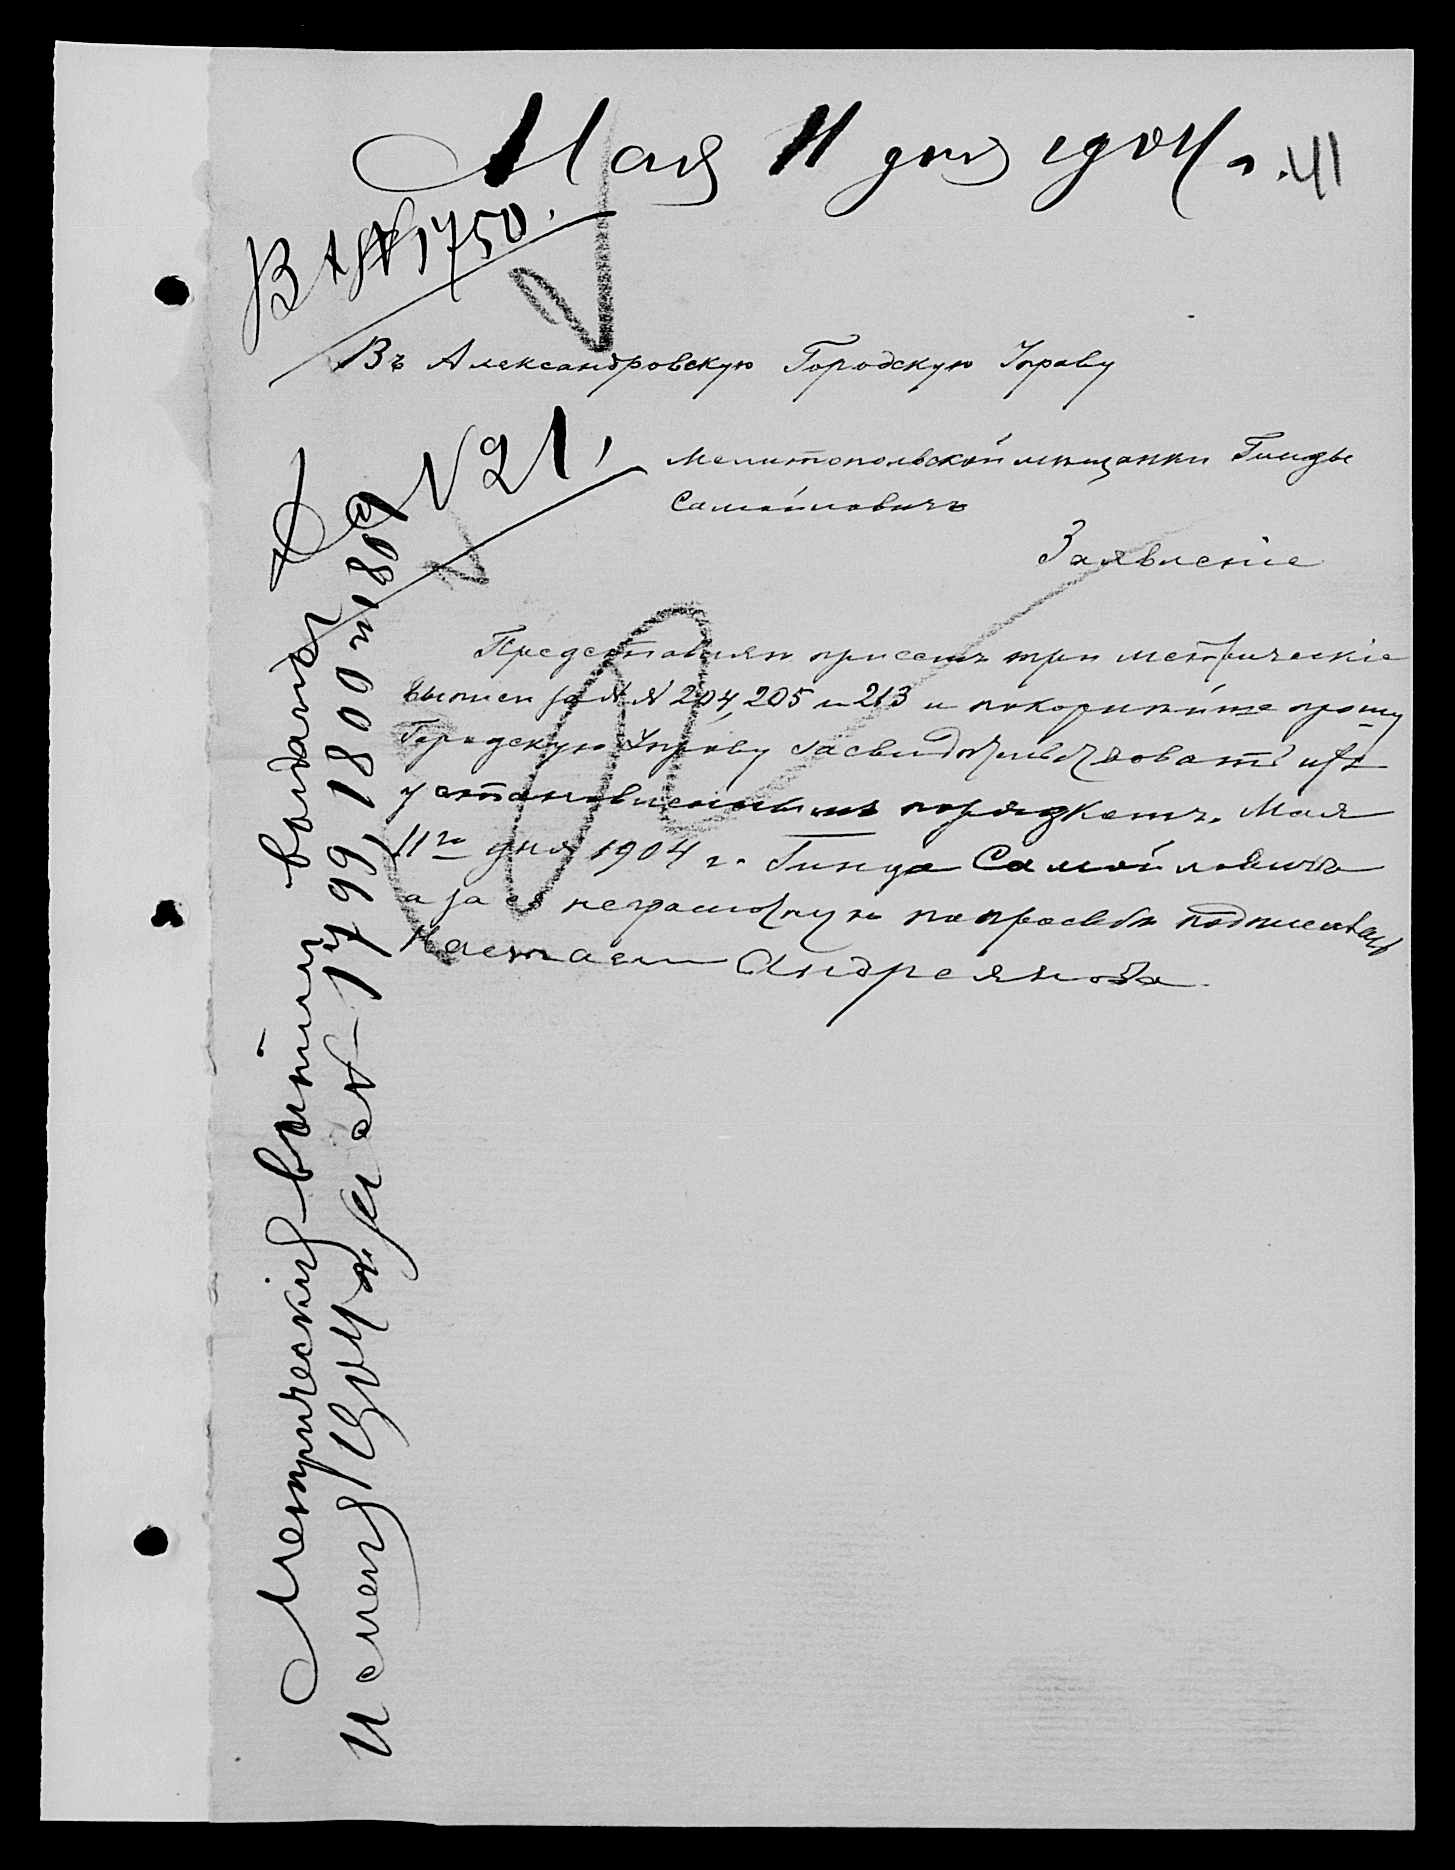 Мая 11 дня 1904 г.
41
В А № 1750.
Въ Александровскую Городскую Управу
№ 21.
Мелитопольской мещанки Гинды
Самойловичъ
Заявленіе
Представляя присемъ три метрическіе
выписи за №№ 204, 205 и 213 и покорнейше прошу
Городскую Управу засвидѣтельствовать ихъ
установленнымъ порядкомъ. Мая
11го дня 1904 г. Гинда Самойловичъ
а за ея неграмотную по просьбѣ
Андреянова
Метрическія выписи выданы
1799, 1800 и 1801